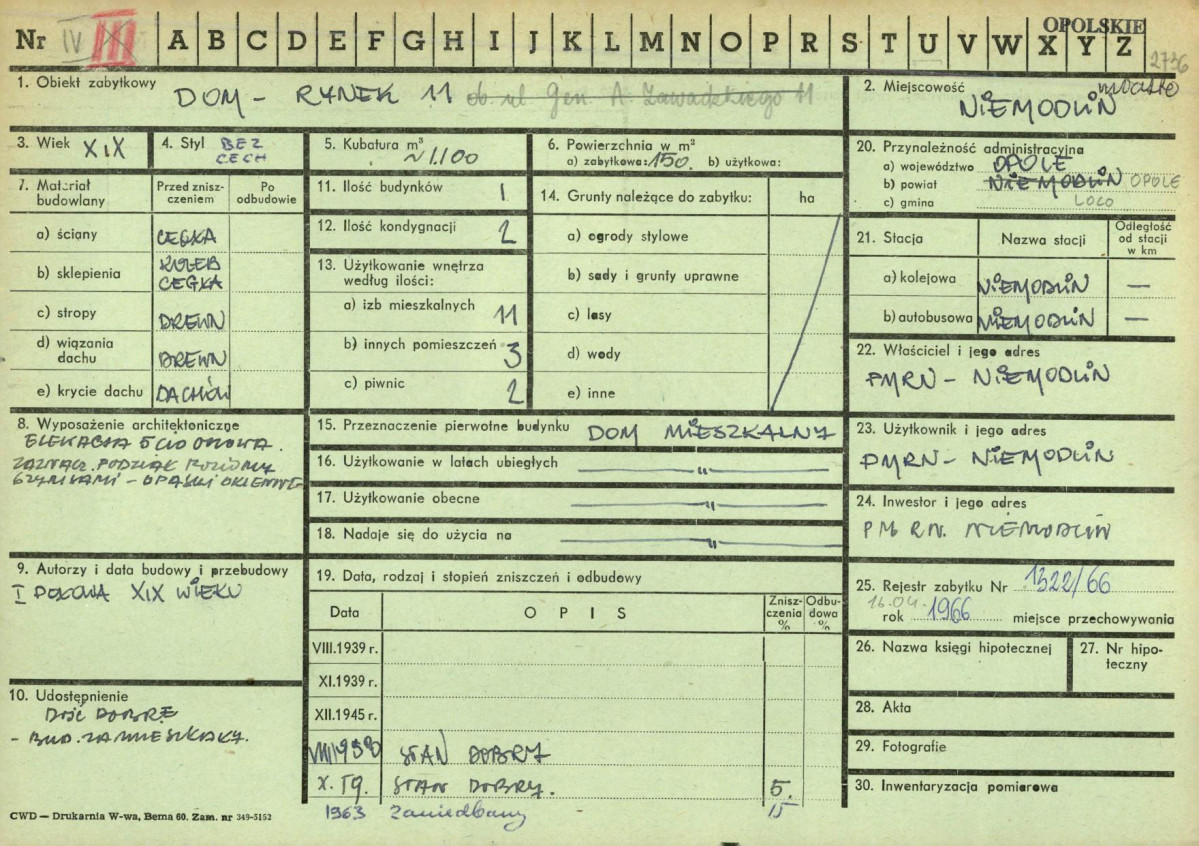 Nr IV III A B C D E F G H I J K L M N O P R S T U V W X Y Z
OPOLSKIE
2736
1. Obiekt zabytkowy DOM - RYNEK 11 ob. ul. Gen. A. Zawadzkiego 11
2. Miejscowość miasto
NIEMODLIN
3. Wiek XIX
4. Styl BEZ CECH
5. Kubatura m³ ~1.100
6. Powierzchnia w m²
a) zabytkowa: 150. b) użytkowa:
20. Przynależność administracyjna
a) województwo OPOLE
b) powiat NIEMODLIN OPOLE
c) gmina LOCO
7. Materiał budowlany
Przed zniszczeniem
Po odbudowie
a) ściany CEGŁA
b) sklepienia KOLEB CEGŁA
c) stropy DREWN
d) wiązania dachu DREWN
e) krycie dachu DACHÓW
11. Ilość budynków 1
12. Ilość kondygnacji 2
13. Użytkowanie wnętrza
według ilości:
a) izb mieszkalnych 11
b) innych pomieszczeń 3
c) piwnic 2
14. Grunty należące do zabytku: ha
a) ogrody stylowe
b) sady i grunty uprawne
c) lasy
d) wody
e) inne
21. Stacja Nazwa stacji Odległość od stacji w km
a) kolejowa NIEMODLIN —
b) autobusowa NIEMODLIN —
22. Właściciel i jego adres
PMRN - NIEMODLIN
8. Wyposażenie architektoniczne
ELEWACJA 5CIO OSIOWA.
ZAZNACZ. PODZIAŁ POZIOMY
GZYMSAMI - OPASKI OKIENNE
15. Przeznaczenie pierwotne budynku DOM MIESZKALNY
16. Użytkowanie w latach ubiegłych — " —
17. Użytkowanie obecne — " —
18. Nadaje się do użycia na — " —
23. Użytkownik i jego adres
PMRN - NIEMODLIN
24. Inwestor i jego adres
PMRN. NIEMODLIN
9. Autorzy i data budowy i przebudowy
I POŁOWA XIX WIEKU
10. Udostępnienie
DOŚĆ DOBRE
- BUD. ZAMIESZKAŁY.
19. Data, rodzaj i stopień zniszczeń i odbudowy
Data OPIS Zniszczenia % Odbudowa %
VIII.1939 r.
XI.1939 r.
XII.1945 r.
VIII 1958 STAN DOBRY
X. 59. STAN DOBRY. 5.
1963 Zaniedbany 15
25. Rejestr zabytku Nr 1322/66
16.04.
rok 1966 miejsce przechowywania
26. Nazwa księgi hipotecznej
27. Nr hipoteczny
28. Akta
29. Fotografie
30. Inwentaryzacja pomiarowa
CWD — Drukarnia W-wa, Bema 60. Zam. nr 349-5152